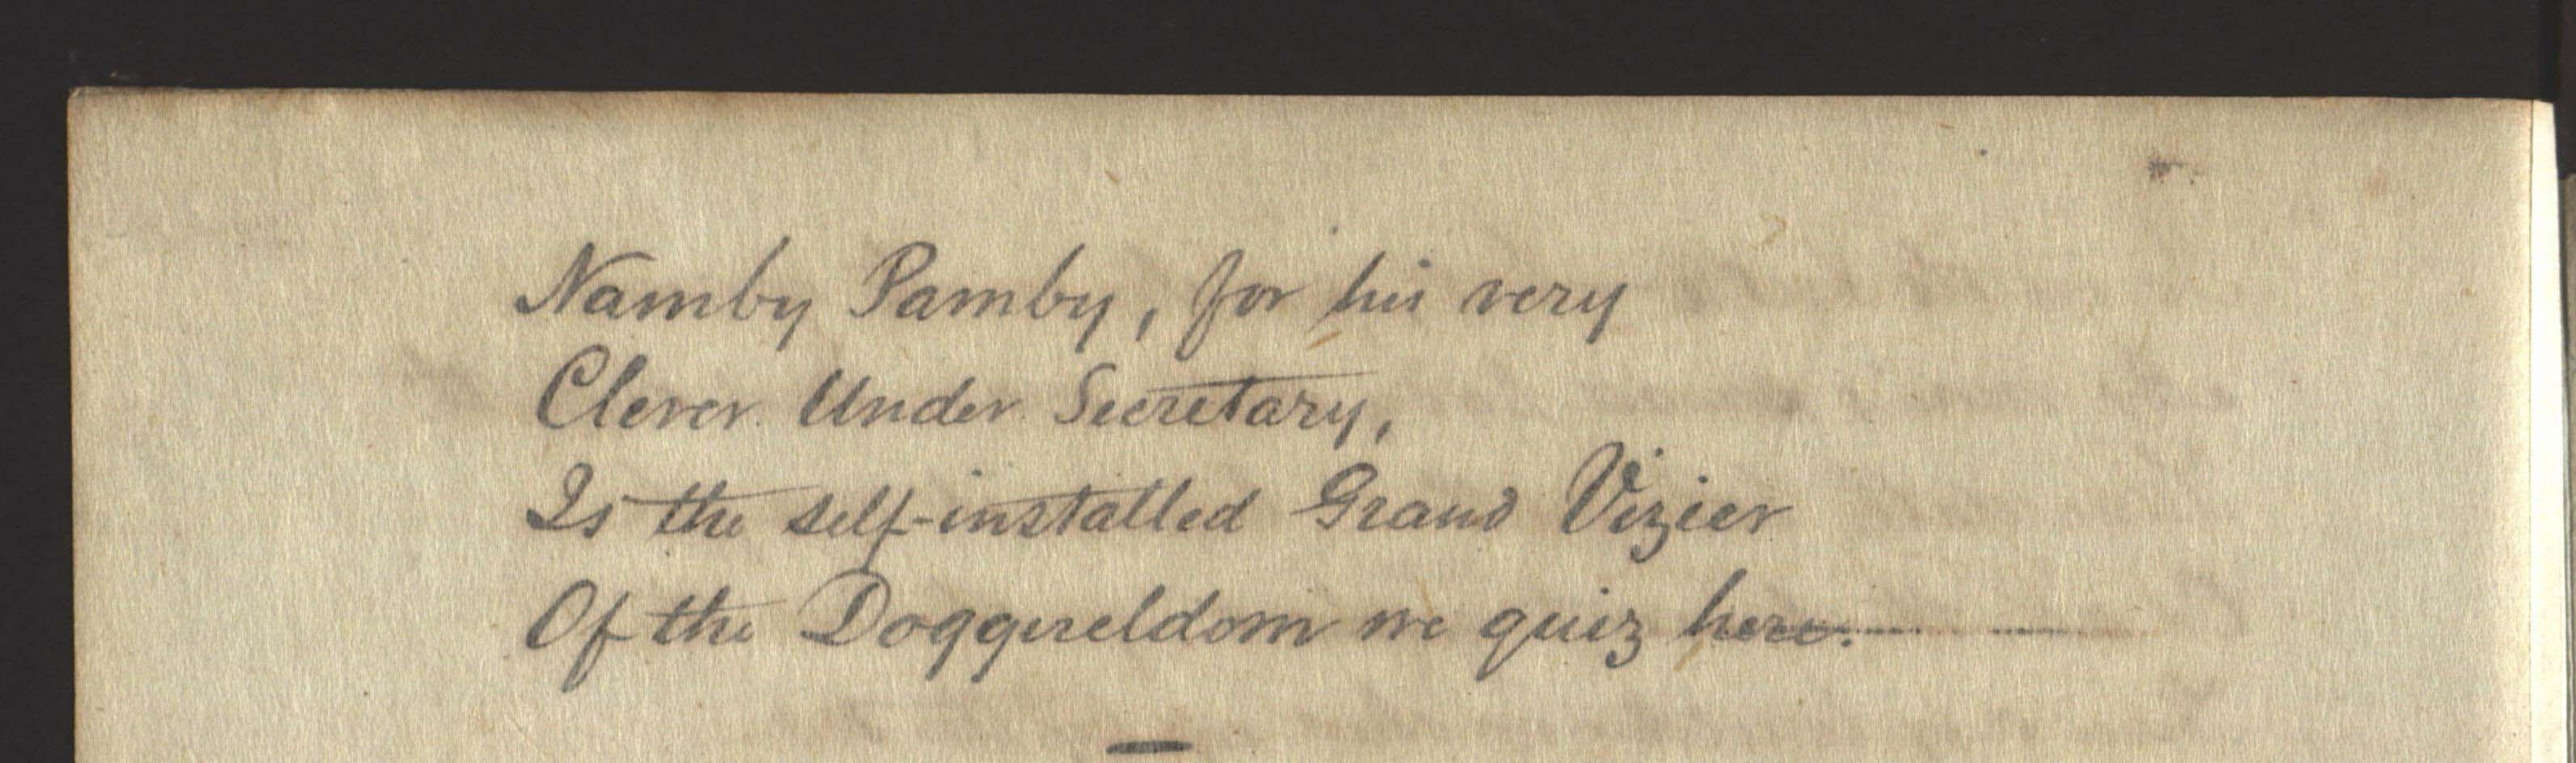 Namby Pamby, for his very
Clever Under Secretary,
Is the self-installed Grand Vizier
Of the Doggereldom we quiz here.